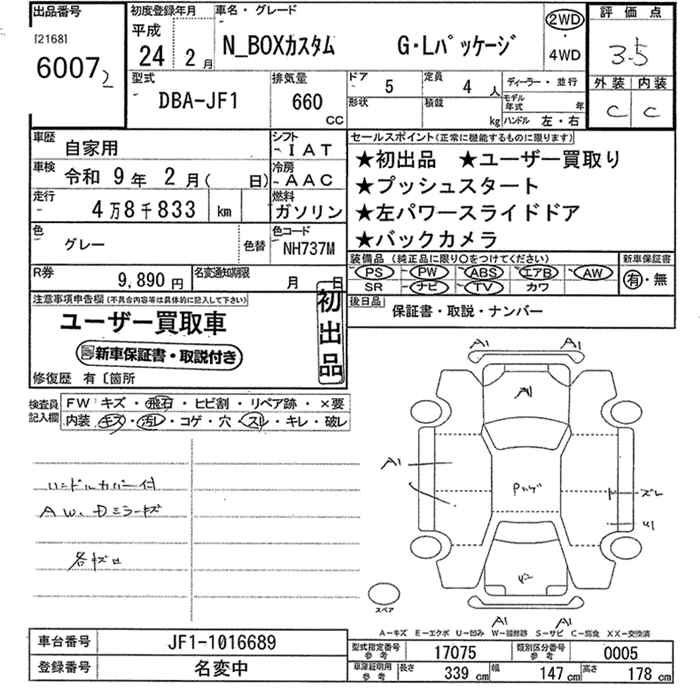 出品番号 初度登録年月 車名・グレード 評価点
[2168] 平成
6007 24 2月 N_BOXカスタム G・Lパッケージ 2WD・4WD 3.5
型式 排気量 ドア 5 定員 4 人 ディーラー・並行 外装 内装
DBA-JF1 660 CC 形状 積載 kg モデル年式 年 C C
ハンドル 左・右
車歴 自家用 シフト IAT セールスポイント(正常に機能するものに限ります)
車検 令和 9年 2月( 日) 冷房 AAC ★初出品 ★ユーザー買取り
走行 4万8千833 km 燃料 ガソリン ★プッシュスタート
★左パワースライドドア
色 グレー 色替 色コード NH737M ★バックカメラ
装備品(純正品に限り○をつけてください) 新車保証書
R券 9,890円 名変通知期限 月 日 PS PW ABS エアB AW 有・無
SR ナビ TV カワ
注意事項申告欄(不具合内容等は具体的に記入して下さい) 初出品 後日品 保証書・取説・ナンバー
ユーザー買取車
新車保証書・取説付き
修復歴 有〔箇所
検査員記入欄 FW キズ・飛石・ヒビ割・リペア跡・×要
内装 キズ・汚レ・コゲ・穴・スレ・キレ・破レ
A1 A1
A1
ハンドルカバー付
AW、Dミラーキズ
スペア
A1 A1
A-キズ E-エクボ U-凹み W-補修跡 S-サビ C-腐食 XX-交換済
車台番号 JF1-1016689 型式指定番号参考 17075 類別区分番号参考 0005
登録番号 名変中 車庫証明用参考 長さ 339 cm 幅 147 cm 高さ 178 cm